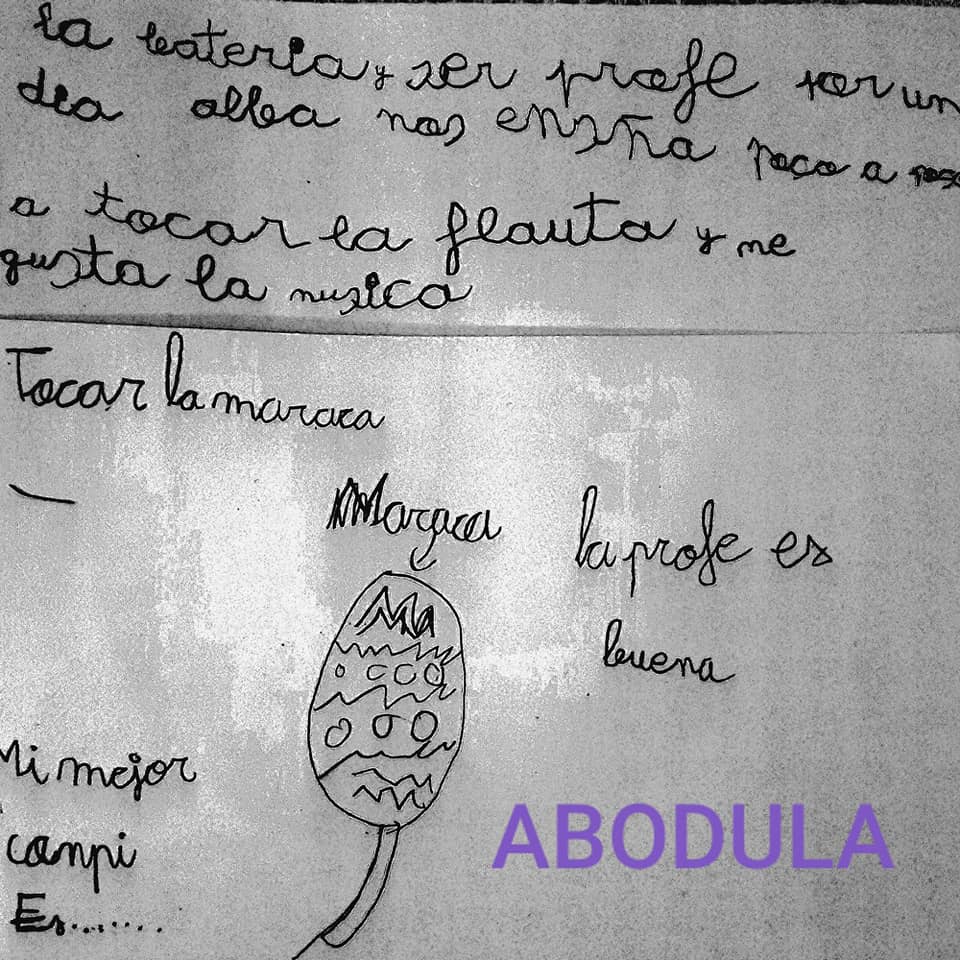 la bateria y ser profe por un
dia alba nos enseña poco a poco
a tocar la flauta y me
gusta la musica
Tocar la maraca
Maraca
la profe es
buena
Ma
Mi mejor
campi
Es.......
ABODULA